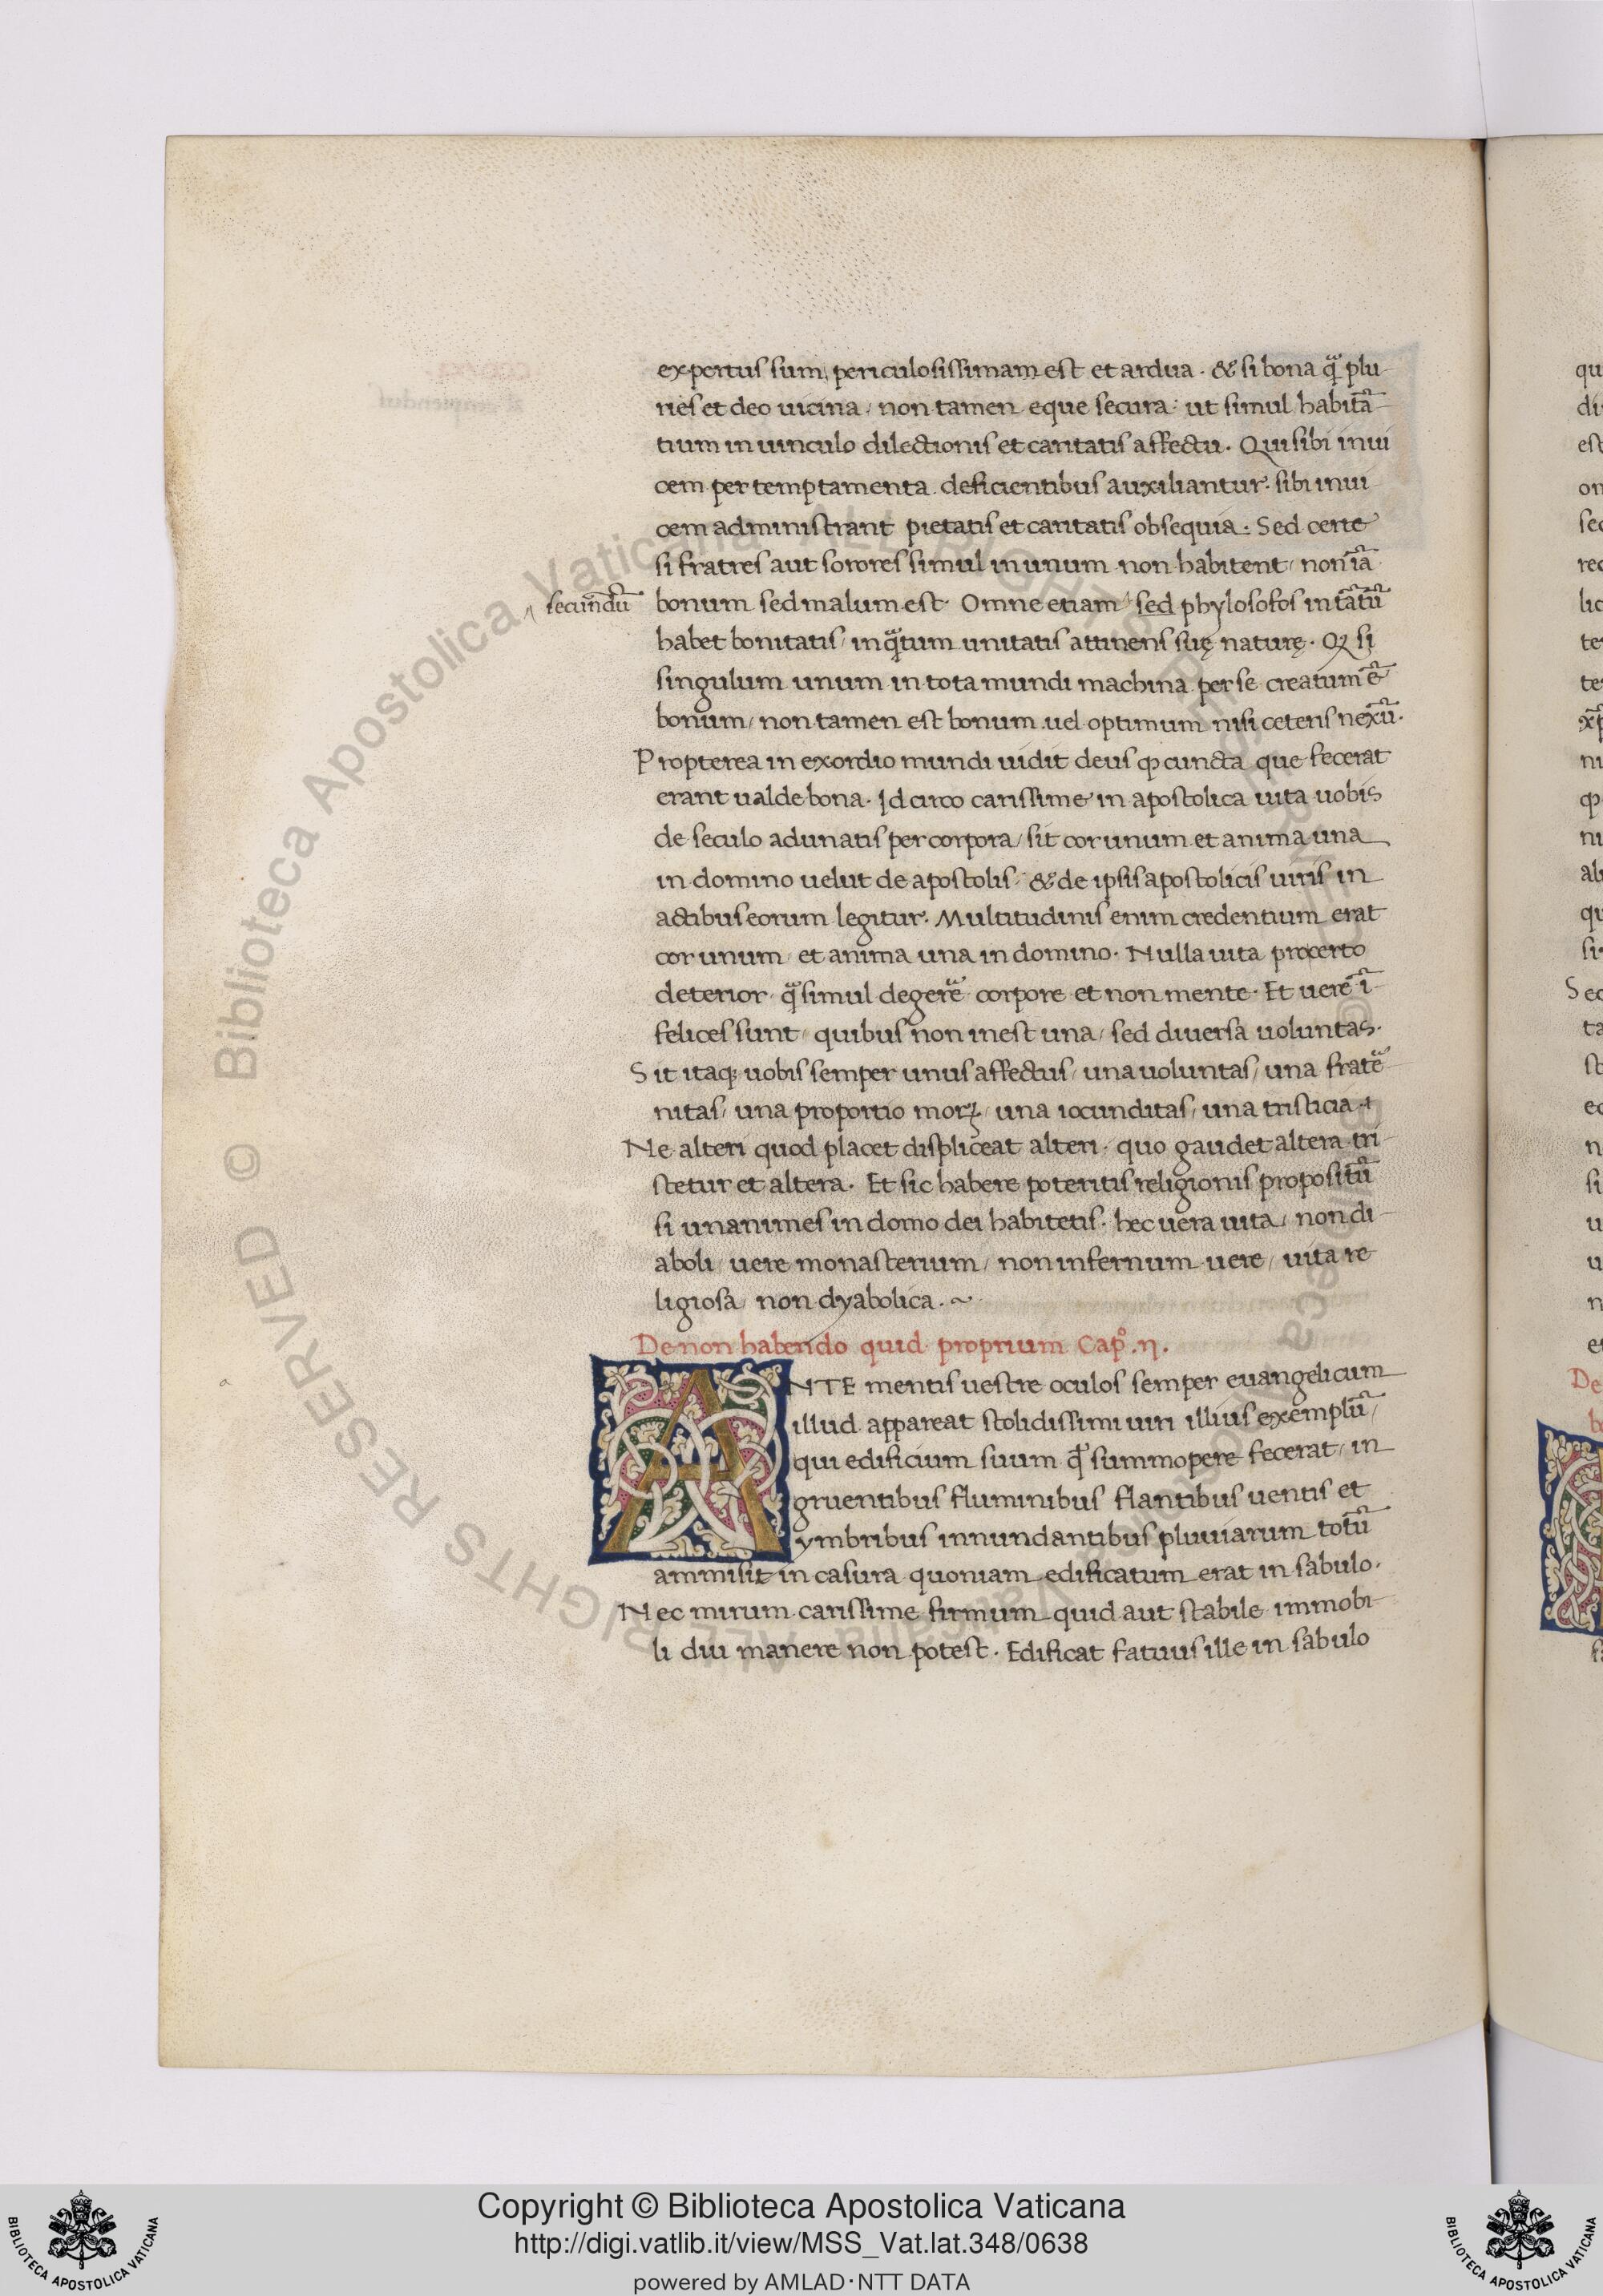 expertus sum, periculosissimam est et ardua. & si bona q̃ plu-
ries et deo uicina, non tamen eque secura: ut simul habitã-
tium in uinculo dilectionis et caritatis affectu. Qui sibi inui
cem per temptamenta deficientibus auxiliantur. sibi inui-
cem administrant pietatis et caritatis obsequia. Sed certe
si fratres aut sorores simul in unum non habitent, non iã
secundũ
bonum sed malum est. Omne etiam sed phylosofos in tãtũ
habet bonitatis, in q̃tum unitatis attinens suę naturę. Qꝫ si
singulum unum in tota mundi machina per se creatum ẽ
bonum, non tamen est bonum uel optimum nisi ceteris nexũ.
Propterea in exordio mundi uidit deus ꝙ cuncta que fecerat
erant ualde bona. Id circo carissime in apostolica uita uobis
de seculo adunatis per corpora, sit cor unum et anima una
in domino uelut de apostolis, & de ipsis apostolicis uiris in
actibus eorum legitur. Multitudinis enim credentium erat
cor unum, et anima una in domino. Nulla uita pro certo
deterior, q̃ simul degere corpore et non mente. Et uere ĩ-
felices sunt, quibus non inest una, sed diuersa uoluntas.
Sit itaqꝫ uobis semper unus affectus, una uoluntas, una frate-
nitas, una proportio morꝝ, una iocunditas, una tristicia.
Ne alteri quod placet displiceat alteri, quo gaudet altera tri-
stetur et altera. Et sic habere poteritis religionis propositũ
si unanimes in domo dei habitetis. hec uera uita, non di-
aboli, uere monasterium, non infernum uere, uita re
ligiosa, non dyabolica. ~
De non habendo quid proprium Cap̊. η.
ANTE mentis uestre oculos semper euangelicum
illud appareat stolidissimi uiri illius exemplũ,
qui edificium suum q̃ summopere fecerat, in
gruentibus fluminibus flantibus uentis et
ymbribus innundantibus pluuiarum totũ
ammisit in casura quoniam edificatum erat in sabulo.
Nec mirum carissime firmum quid aut stabile immobi-
li diu manere non potest. Edificat fatuus ille in sabulo
© Biblioteca Apostolica Vaticana ALL RIGHTS RESERVED
Copyright © Biblioteca Apostolica Vaticana
http://digi.vatlib.it/view/MSS_Vat.lat.348/0638
powered by AMLAD·NTT DATA
BIBLIOTECA APOSTOLICA VATICANA
BIBLIOTECA APOSTOLICA VATICANA